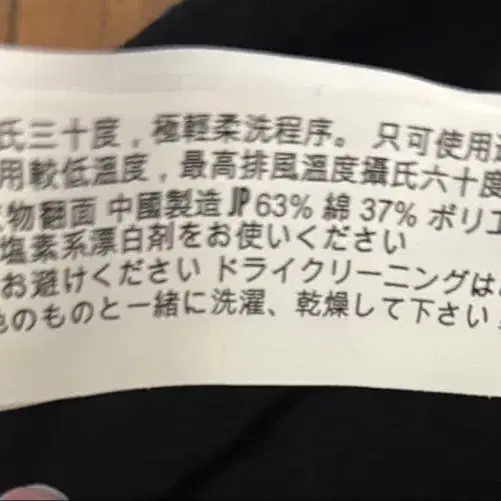 氏三十度，極輕柔洗程序。 只可使用
用較低溫度，最高排風溫度攝氏六十度
物翻面 中國製造 JP 63% 綿 37% ポリエ
塩素系漂白剤をお使いください
お避けください ドライクリーニングは
色のものと一緒に洗濯、乾燥して下さい